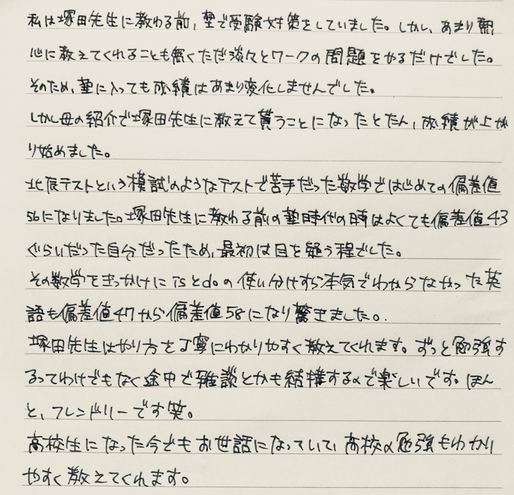 私は塚田先生に教わる前、塾で受験対策をしていました。しかし、あまり熱
心に教えてくれることも無くただ淡々とワークの問題をやるだけでした。
そのため、塾に入っても成績はあまり変化しませんでした。
しかし母の紹介で塚田先生に教えて貰うことになったとたん、成績が上が
り始めました。
北辰テストという模試のようなテストで苦手だった数学ではじめての偏差値
56になりました。塚田先生に教わる前の塾時代の時はよくても偏差値43
ぐらいだった自分だったため、最初は目を疑う程でした。
その数学をきっかけに isとdoの使い分けすら本気でわからなかった英
語も偏差値47から偏差値58になり驚きました。
塚田先生はやり方を丁寧にわかりやすく教えてくれます。ずっと勉強す
るってわけでもなく途中で雑談とかも結構するので楽しいです。ほん
と、フレンドリーです笑。
高校生になった今でもお世話になっていて、高校の勉強もわかり
やすく教えてくれます。